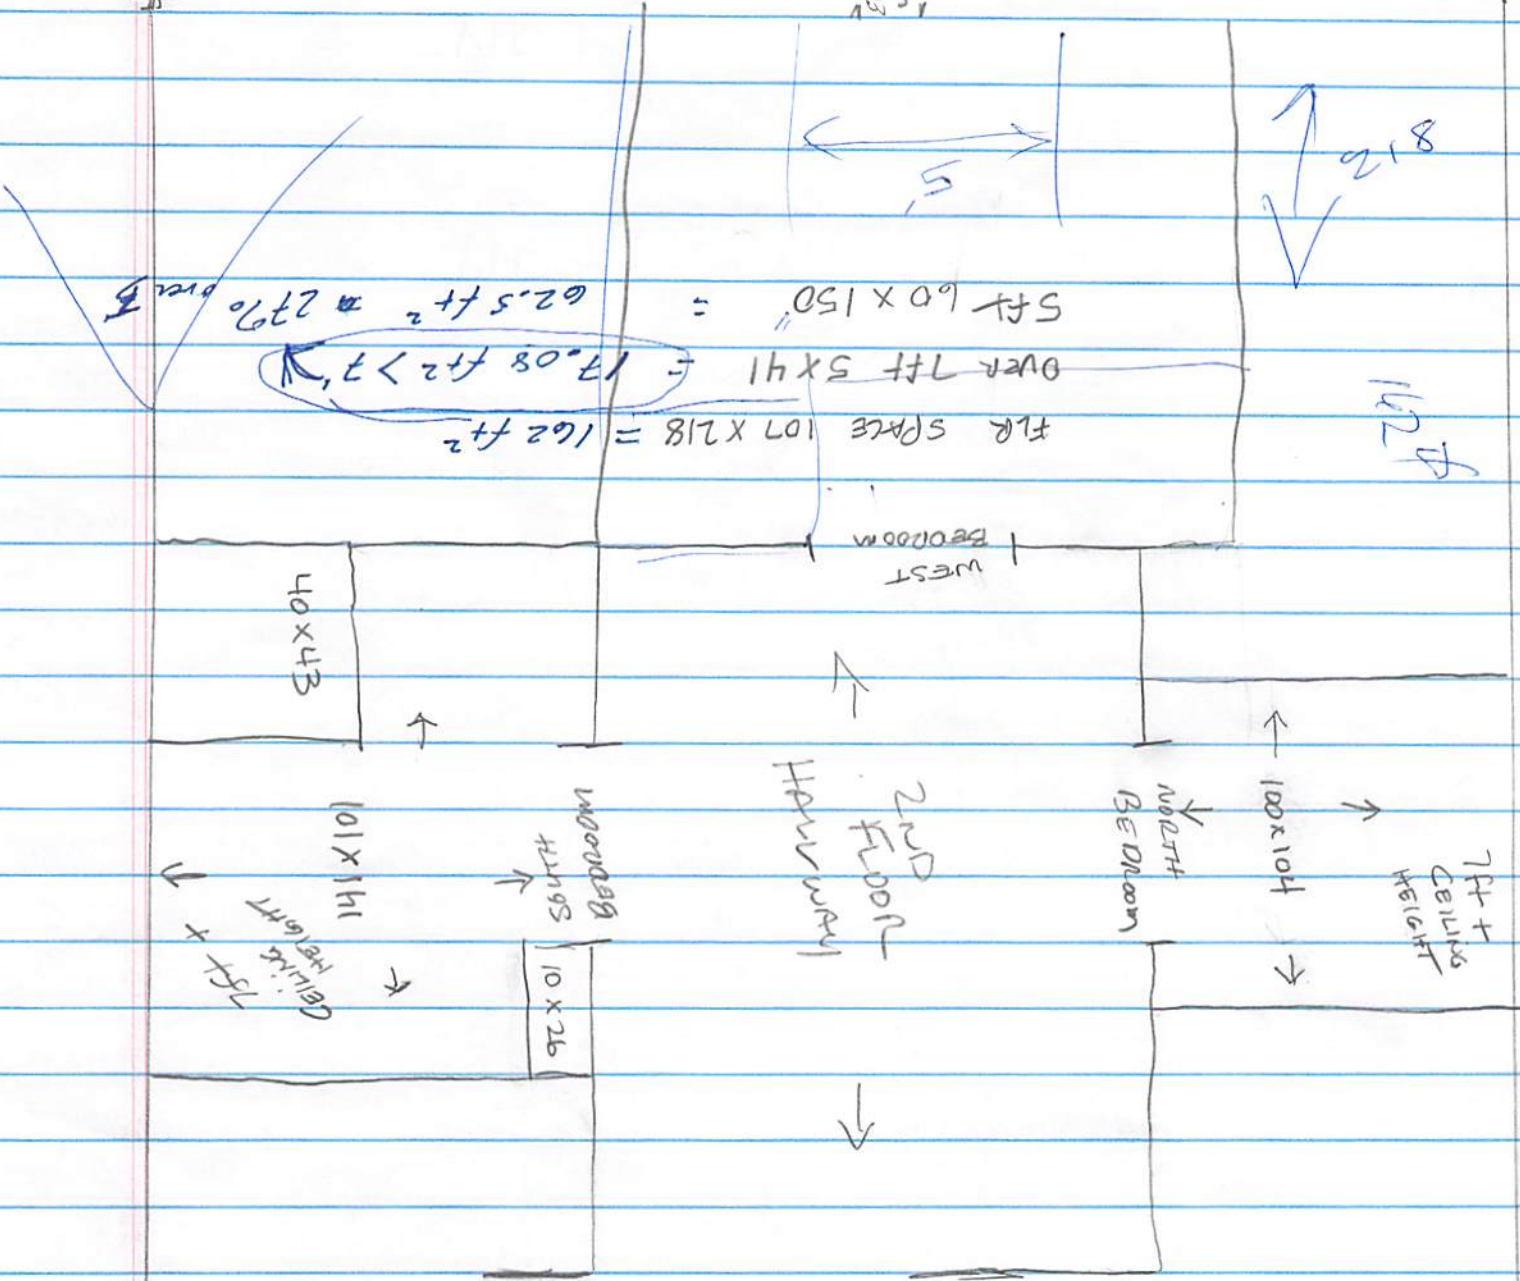 8'2
5'
162 ft
FLR SPACE 107 X 218 = 162 ft²
OVER 7ft 5X41 = 17.08 ft2 > 7'
5ft 60 X 150" = 62.5 ft² 27% over 5
WEST
BEDROOM
40X43
101X141
7ft +
CEILING
HEIGHT
SOUTH
BEDROOM
10X26
2ND
FLOOR
HALLWAY
NORTH
BEDROOM
100X104
7ft +
CEILING
HEIGHT